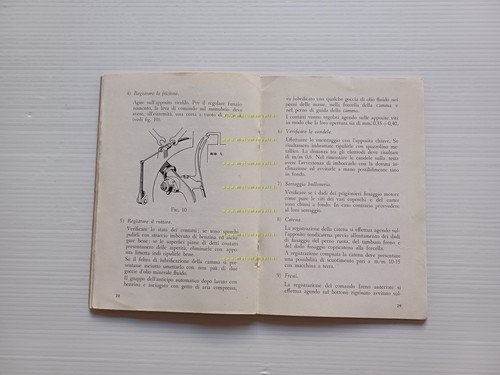 4) Registrare la frizione.
Agire sull'apposito tirello. Per il regolare funzio-
namento, la leva di comando sul manubrio deve
avere, all'estremità, una corsa a vuoto di
(vedi fig. 10).
FIG. 10
5) Registrare il ruttore.
Verificare lo stato dei contatti; se sono sporchi
pulirli con straccio imbevuto di benzina ed asciu-
gare bene; se le superfici piane di detti contatti
presentassero delle asperità eliminarle con appo-
sita limetta indi ripulirle bene.
Se il feltro di lubrificazione della camma si pre-
sentasse asciutto umettarlo con non più di due
gocce di olio minerale fluido.
Il gruppo dell'anticipo automatico dopo lavato con
benzina e asciugato con getto di aria compressa,
28
va lubrificato con qualche goccia di olio fluido nei
perni delle masse, nella forcella della camma e
nel perno di guida della camma.
I contatti vanno regolati agendo sulle apposite viti
in modo che la loro apertura sia di mm. 0,35 ÷ 0,40.
6) Verificare la candela.
Effettuare lo smontaggio con l'apposita chiave. Se
risultassero imbrattate ripulirle con spazzolino me-
tallico. La distanza tra gli elettrodi deve risultare
di m/m 0,6. Nel rimontare le candele sulla testa
avere l'avvertenza di imboccarle con la dovuta in-
clinazione ed avvitarle a mano possibilmente fino
in fondo.
7) Serraggio bulloneria.
Verificare se i dadi dei prigionieri fissaggio motore
come pure le viti dei vari coperchi e del carter
sono chiusi a fondo. In caso contrario provvedere
al loro serraggio.
8) Catena.
La registrazione della catena si effettua agendo sul-
l'apposito tendicatena previo allentamento dei dadi
di fissaggio del perno ruota, del tamburo freno e
del dado fissaggio capicorda alla forcella.
A registrazione compiuta la catena deve presentare
una possibilità di scuotimento pari a m/m 10-15
con macchina a terra.
9) Freni.
La registrazione del comando freno anteriore si
effettua agendo sul bottone rigirato avvitato sul-
29